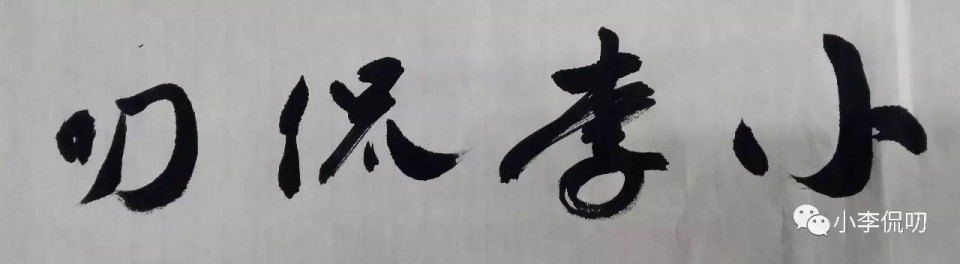 小李侃叨
小李侃叨